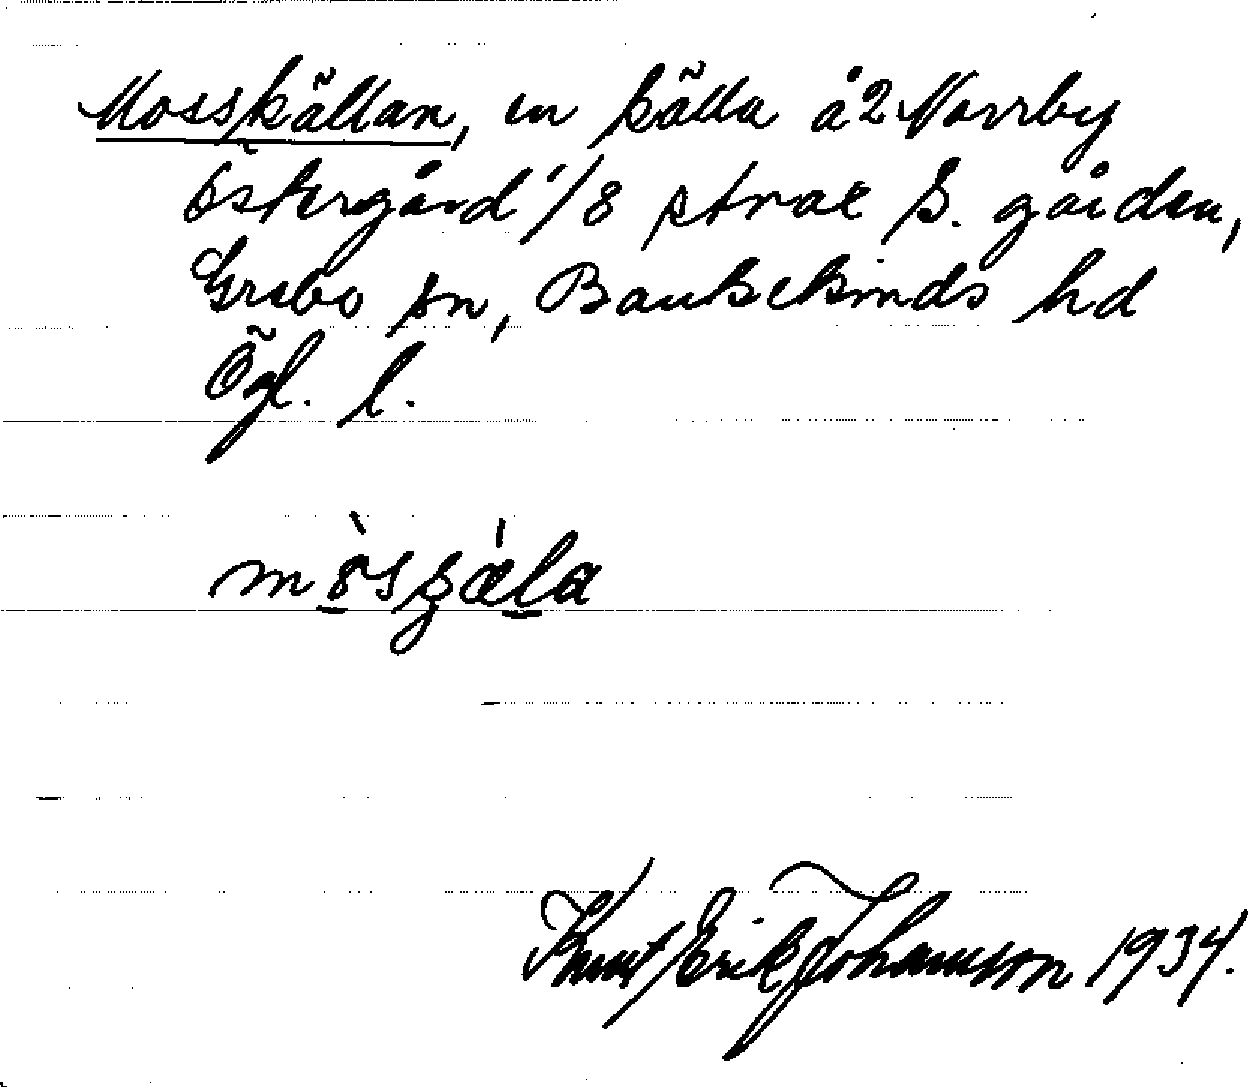 Mosskällan, en källa å 2 Norrby
Östergård 1/8 strax S. gården,
Grebo sn, Bankekinds hd
Ögl. l.
Knut Erik Johansson 1934.